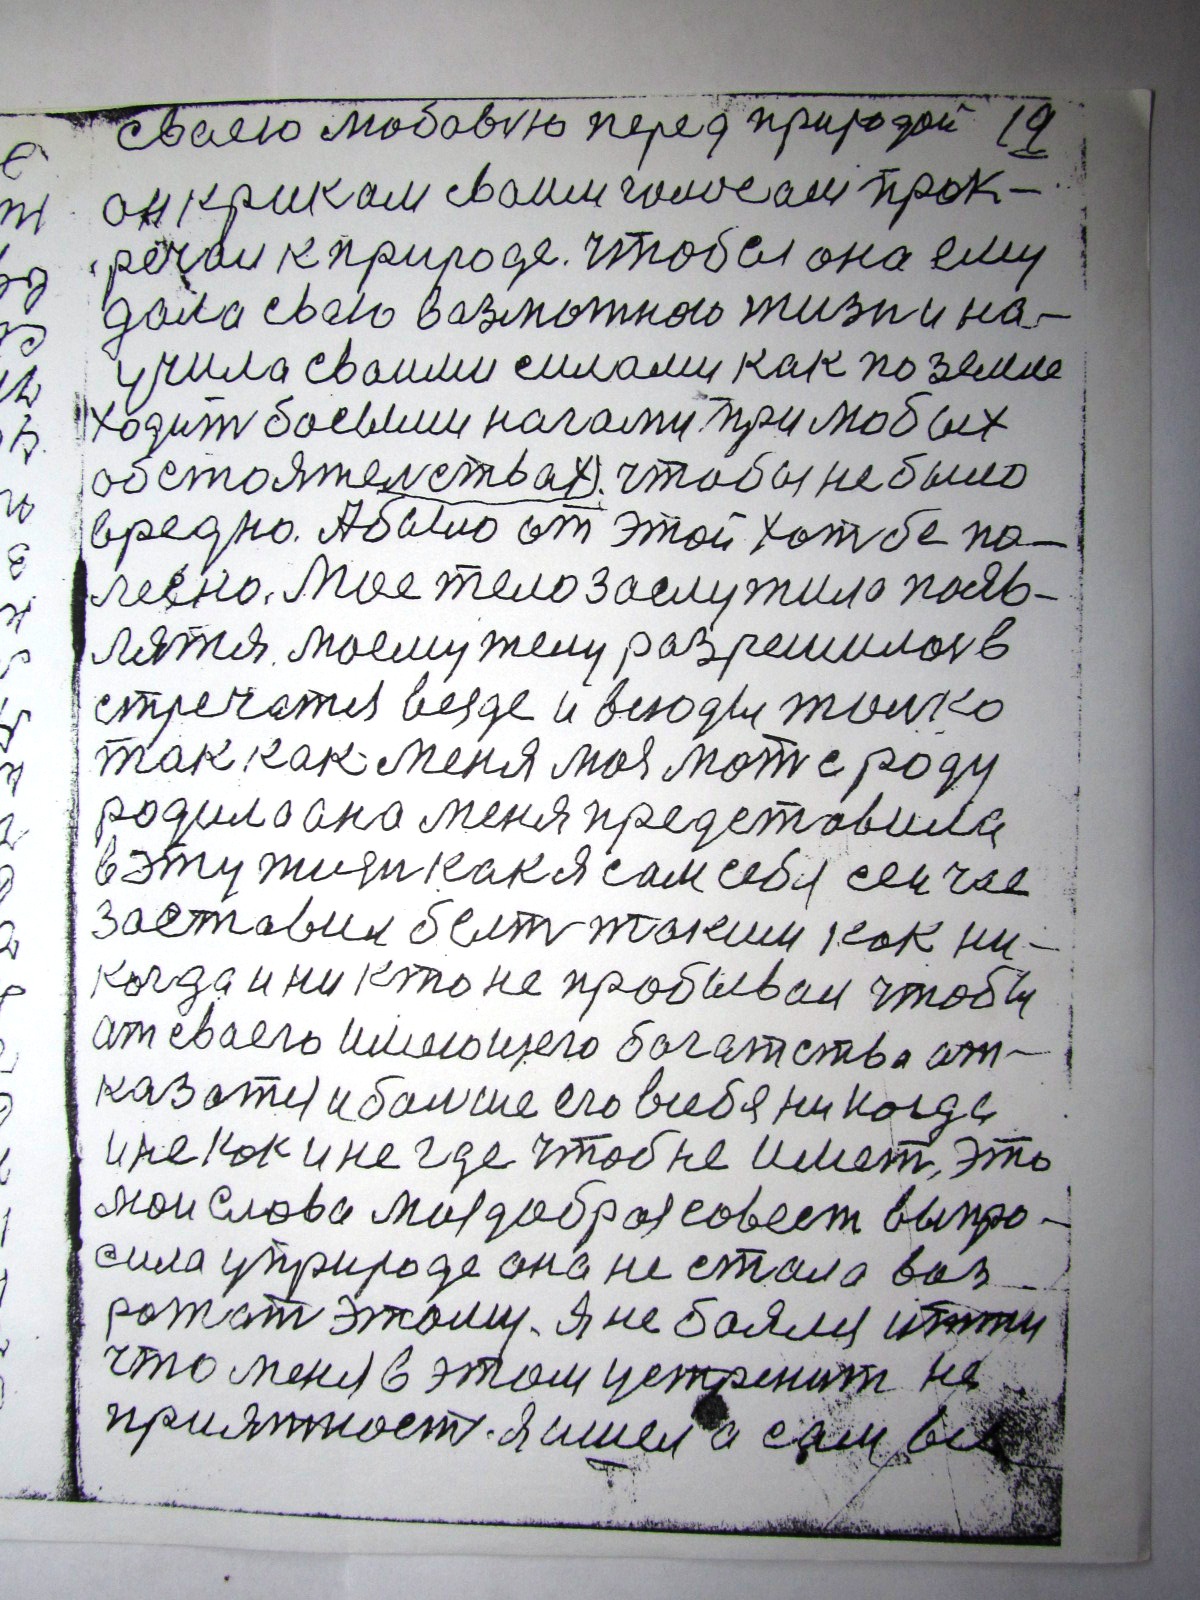 сваею любовию перед природой 19
он криком своим голосом прок-
речал к природе. чтобы она ему
дала сваю возможною жизн и на-
учила своими силами как по земле
ходит босыми ногами при любых
обстоятелствах). чтобы не было
вредно. А было от этой хотябе по-
лезно. Мое тело заслужила појав-
лятся. моему телу разрешилос в
стречатся везде и всюды толко
так как меня моя мат с роду
родила она меня представила
в эту жизн как я сам себя сеичас
заставил быт таким как ни-
когда и ни кто не пробывал чтобы
от своего имеющего богатства от-
казатся и болше его в себя никогда
и не как и не где чтоб не имет, это
мои слова моя добрая совест выпро-
сила у природе она не стала воз
ражат этому. я не боялся итти
что меня в этом устренит не
приятност. я ишел а сам вы